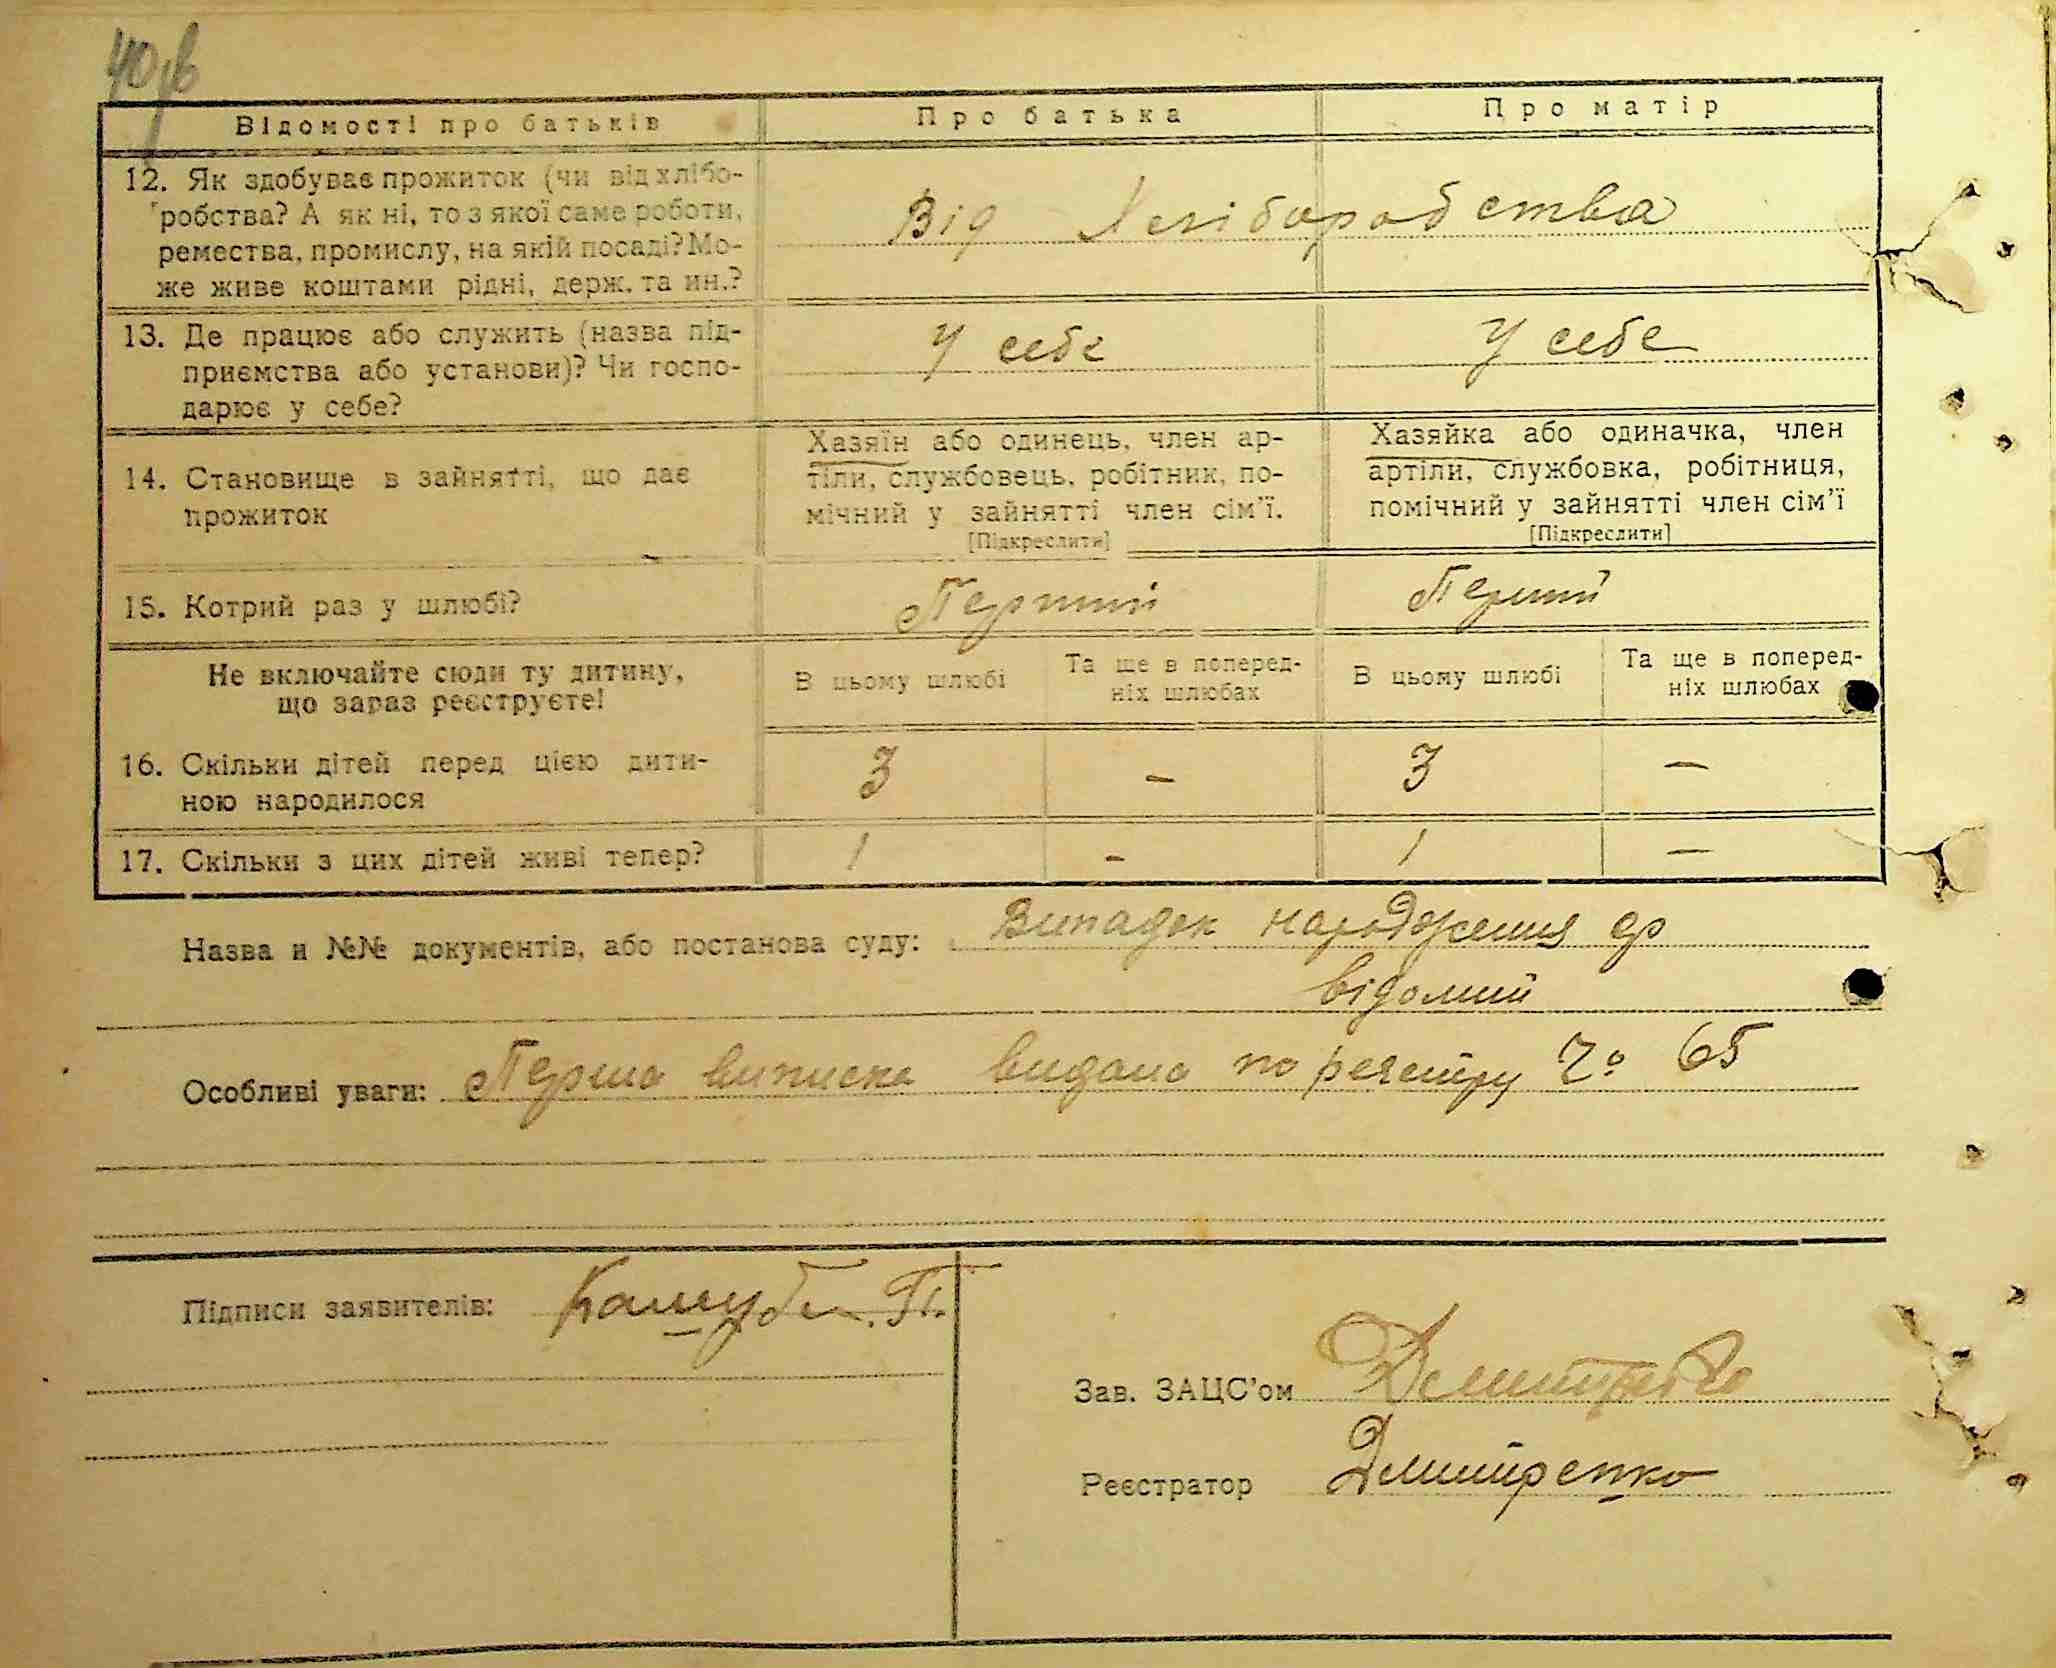 Відомості про батьків
Про батька
Про матір
12. Як здобуває прожиток (чи від хлібо-
робства? А як ні, то з якої саме роботи,
ремества, промислу, на якій посаді? Мо-
же живе коштами рідні, держ. та ин.?
Від Хліборобства
13. Де працює або служить (назва під-
приємства або установи)? Чи госпо-
дарює у себе?
У себе
У себе
14. Становище в зайнятті, що дає
прожиток
Хазяїн або одинець, член ар-
тіли, службовець, робітник, по-
мічний у зайнятті член сім'ї.
[Підкреслити]
Хазяйка або одиначка, член
артіли, службовка, робітниця,
помічний у зайнятті член сім'ї
[Підкреслити]
15. Котрий раз у шлюбі?
Перший
Перший
Не включайте сюди ту дитину,
що зараз реєструєте!
В цьому шлюбі
Та ще в поперед-
ніх шлюбах
В цьому шлюбі
Та ще в поперед-
ніх шлюбах
16. Скільки дітей перед цією дити-
ною народилося
3
–
3
–
17. Скільки з цих дітей живі тепер?
1
-
1
–
Назва и №№ документів, або постанова суду: Випадок народження
відомий
Особливі уваги: Перша виписка видана по реєстру 65
Підписи заявителів: Кашуба П.
Зав. ЗАЦС'ом Дмитренко
Реєстратор Дмитренко